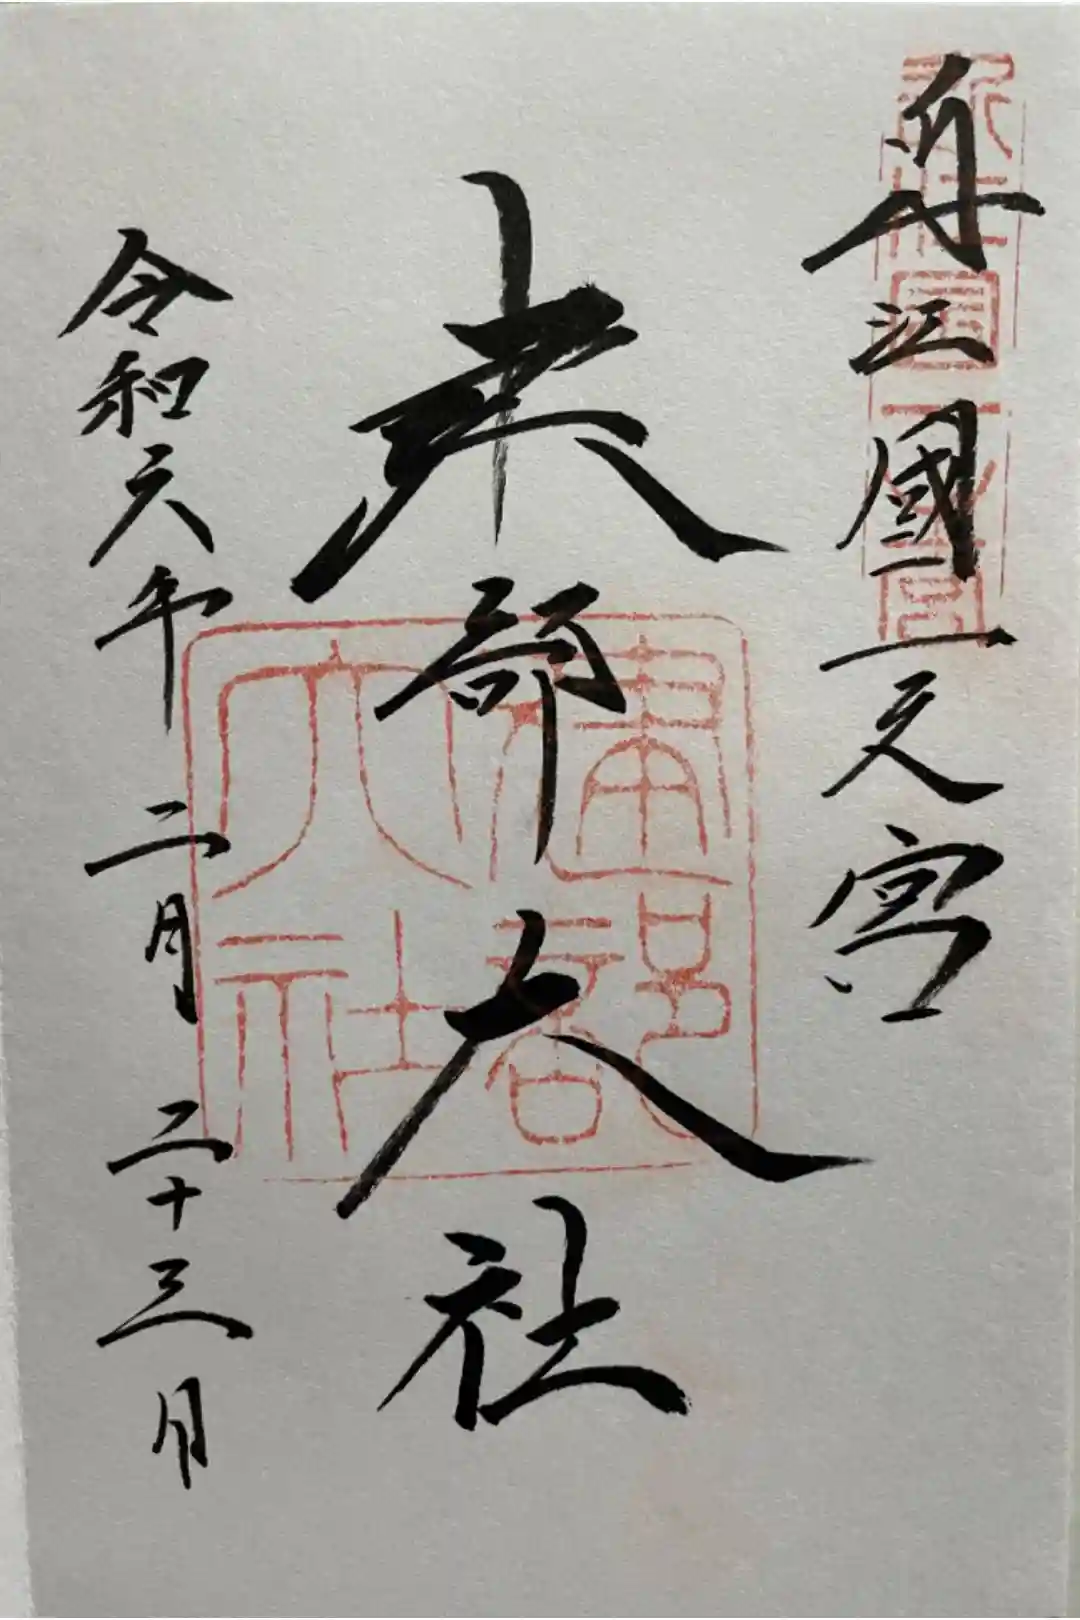 近江國一之宮
建部大社
令和六年二月二十三日
近江國一之宮
建部大社